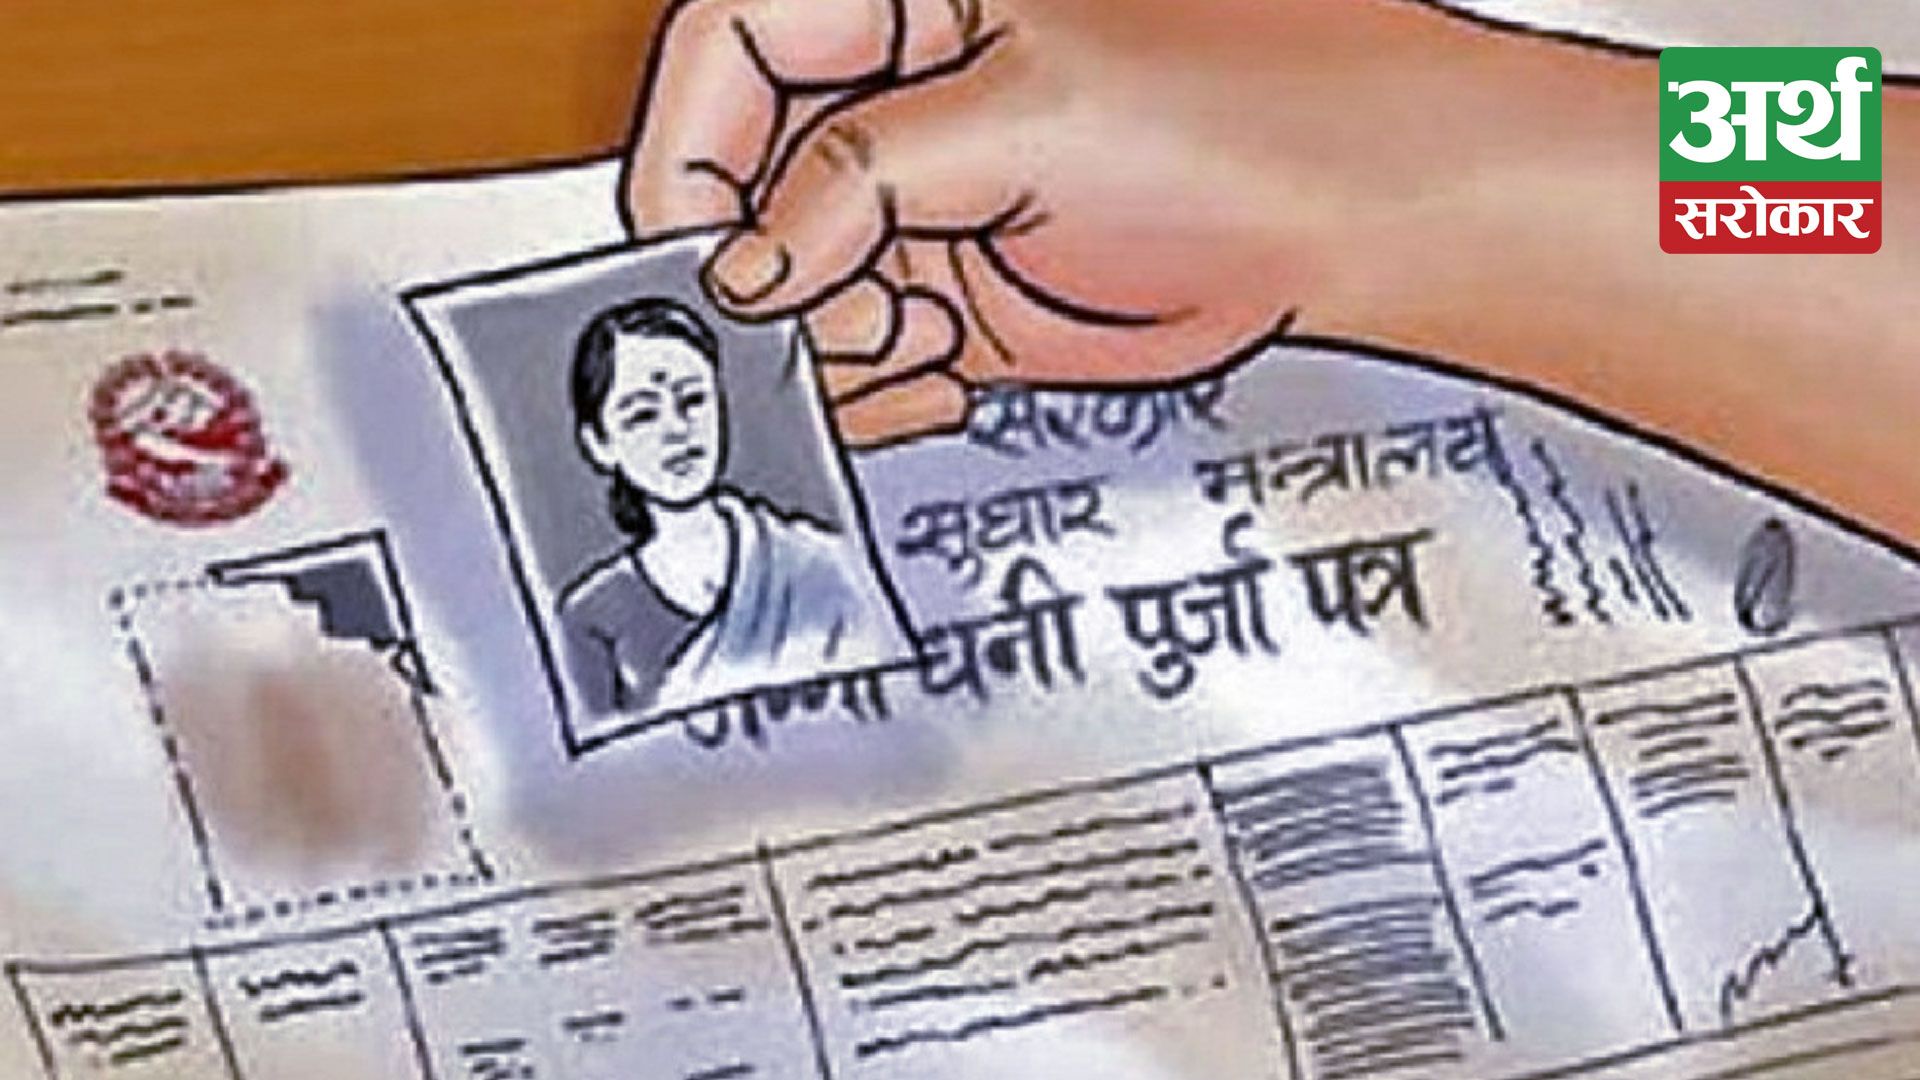 अर्थ
सरोकार
सरकार
सुधार मन्त्रालय
धनी पुर्जा पत्र